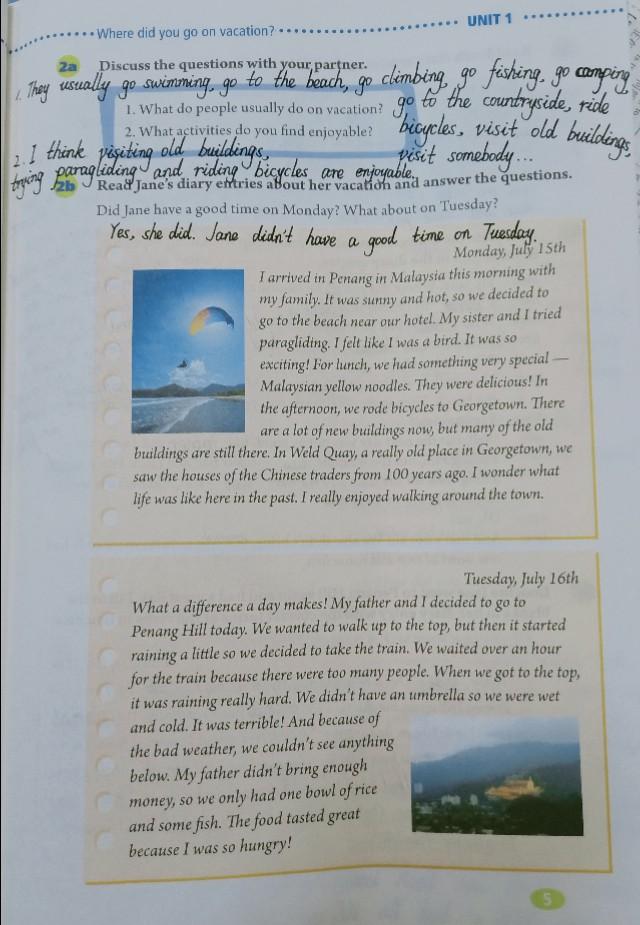 Where did you go on vacation?
UNIT 1
2a Discuss the questions with your partner.
1. They usually go swimming, go to the beach, go climbing, go fishing, go camping,
go to the countryside, ride
bicycles, visit old buildings,
visit somebody...
1. What do people usually do on vacation?
2. What activities do you find enjoyable?
2. I think visiting old buildings,
trying paragliding and riding bicycles are enjoyable.
2b Read Jane's diary entries about her vacation and answer the questions.
Did Jane have a good time on Monday? What about on Tuesday?
Yes, she did. Jane didn't have a good time on Tuesday.
Monday, July 15th
I arrived in Penang in Malaysia this morning with
my family. It was sunny and hot, so we decided to
go to the beach near our hotel. My sister and I tried
paragliding. I felt like I was a bird. It was so
exciting! For lunch, we had something very special —
Malaysian yellow noodles. They were delicious! In
the afternoon, we rode bicycles to Georgetown. There
are a lot of new buildings now, but many of the old
buildings are still there. In Weld Quay, a really old place in Georgetown, we
saw the houses of the Chinese traders from 100 years ago. I wonder what
life was like here in the past. I really enjoyed walking around the town.
Tuesday, July 16th
What a difference a day makes! My father and I decided to go to
Penang Hill today. We wanted to walk up to the top, but then it started
raining a little so we decided to take the train. We waited over an hour
for the train because there were too many people. When we got to the top,
it was raining really hard. We didn't have an umbrella so we were wet
and cold. It was terrible! And because of
the bad weather, we couldn't see anything
below. My father didn't bring enough
money, so we only had one bowl of rice
and some fish. The food tasted great
because I was so hungry!
5